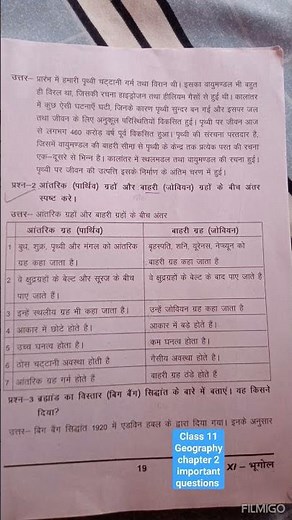 उत्तर– प्रारंभ में हमारी पृथ्वी चट्टानी गर्म तथा विरान थी। इसका वायुमण्डल भी बहुत
ही विरल था, जिसकी रचना हाइड्रोजन तथा हीलियम गैसों से हुई थी। कालांतर
में कुछ ऐसी घटनाएँ घटी, जिनके कारण पृथ्वी सुन्दर बन गई और इसपर जल
तथा जीवन के लिए अनुकूल परिस्थितियाँ विकसित हुई। पृथ्वी पर जीवन आज
से लगभग 460 करोड़ वर्ष पूर्व विकसित हुआ। पृथ्वी की संरचना परतदार है,
जिसमें वायुमण्डल की बाहरी सीमा से पृथ्वी के केन्द्र तक प्रत्येक परत की रचना
एक–दूसरे से भिन्न है। कालांतर में स्थलमंडल तथा वायुमण्डल की रचना हुई।
पृथ्वी पर जीवन की उत्पत्ति इसके निर्माण के अंतिम चरण में हुई।
प्रश्न–2 आंतरिक (पार्थिव) ग्रहों और बाहरी (जोवियन) ग्रहों के बीच अंतर
स्पष्ट करे।
उत्तर– आंतरिक ग्रहों और बाहरी ग्रहों के बीच अंतर
आंतरिक ग्रह (पार्थिव) बाहरी ग्रह (जोवियन)
1 बुध, शुक्र, पृथ्वी और मंगल को आंतरिक बृहस्पति, शनि, यूरेनस, नेप्च्यून को
ग्रह कहा जाता है। बाहरी ग्रह कहा जाता है
2 वे क्षुद्रग्रहों के बेल्ट और सूरज के बीच वे क्षुद्रग्रहों के बेल्ट के बाद पाए जाते है
पाए जाते हैं।
3 इन्हें स्थलीय ग्रह भी कहा जाता है। उन्हें जोवियन ग्रह कहा जाता है
4 आकार में छोटे होते है। आकार में बड़े होते हैं।
5 उच्च घनत्व होता है। कम घनत्व होता है।
6 ठोस चट्टानी अवस्था होती है गैसीय अवस्था होते है।
7 आंतरिक ग्रह गर्म होते हैं बाहरी ग्रह ठंडे होते हैं
प्रश्न–3 ब्रह्मांड का विस्तार (बिग बैंग) सिद्धांत के बारे में बताएं। यह किसने
दिया?
उत्तर– बिग बैंग सिद्धांत 1920 में एडविन हबल के द्वारा दिया गया। इनके अनुसार
Class 11
Geography
chapter 2
important
questions
19
XI – भूगोल
FILMIGO